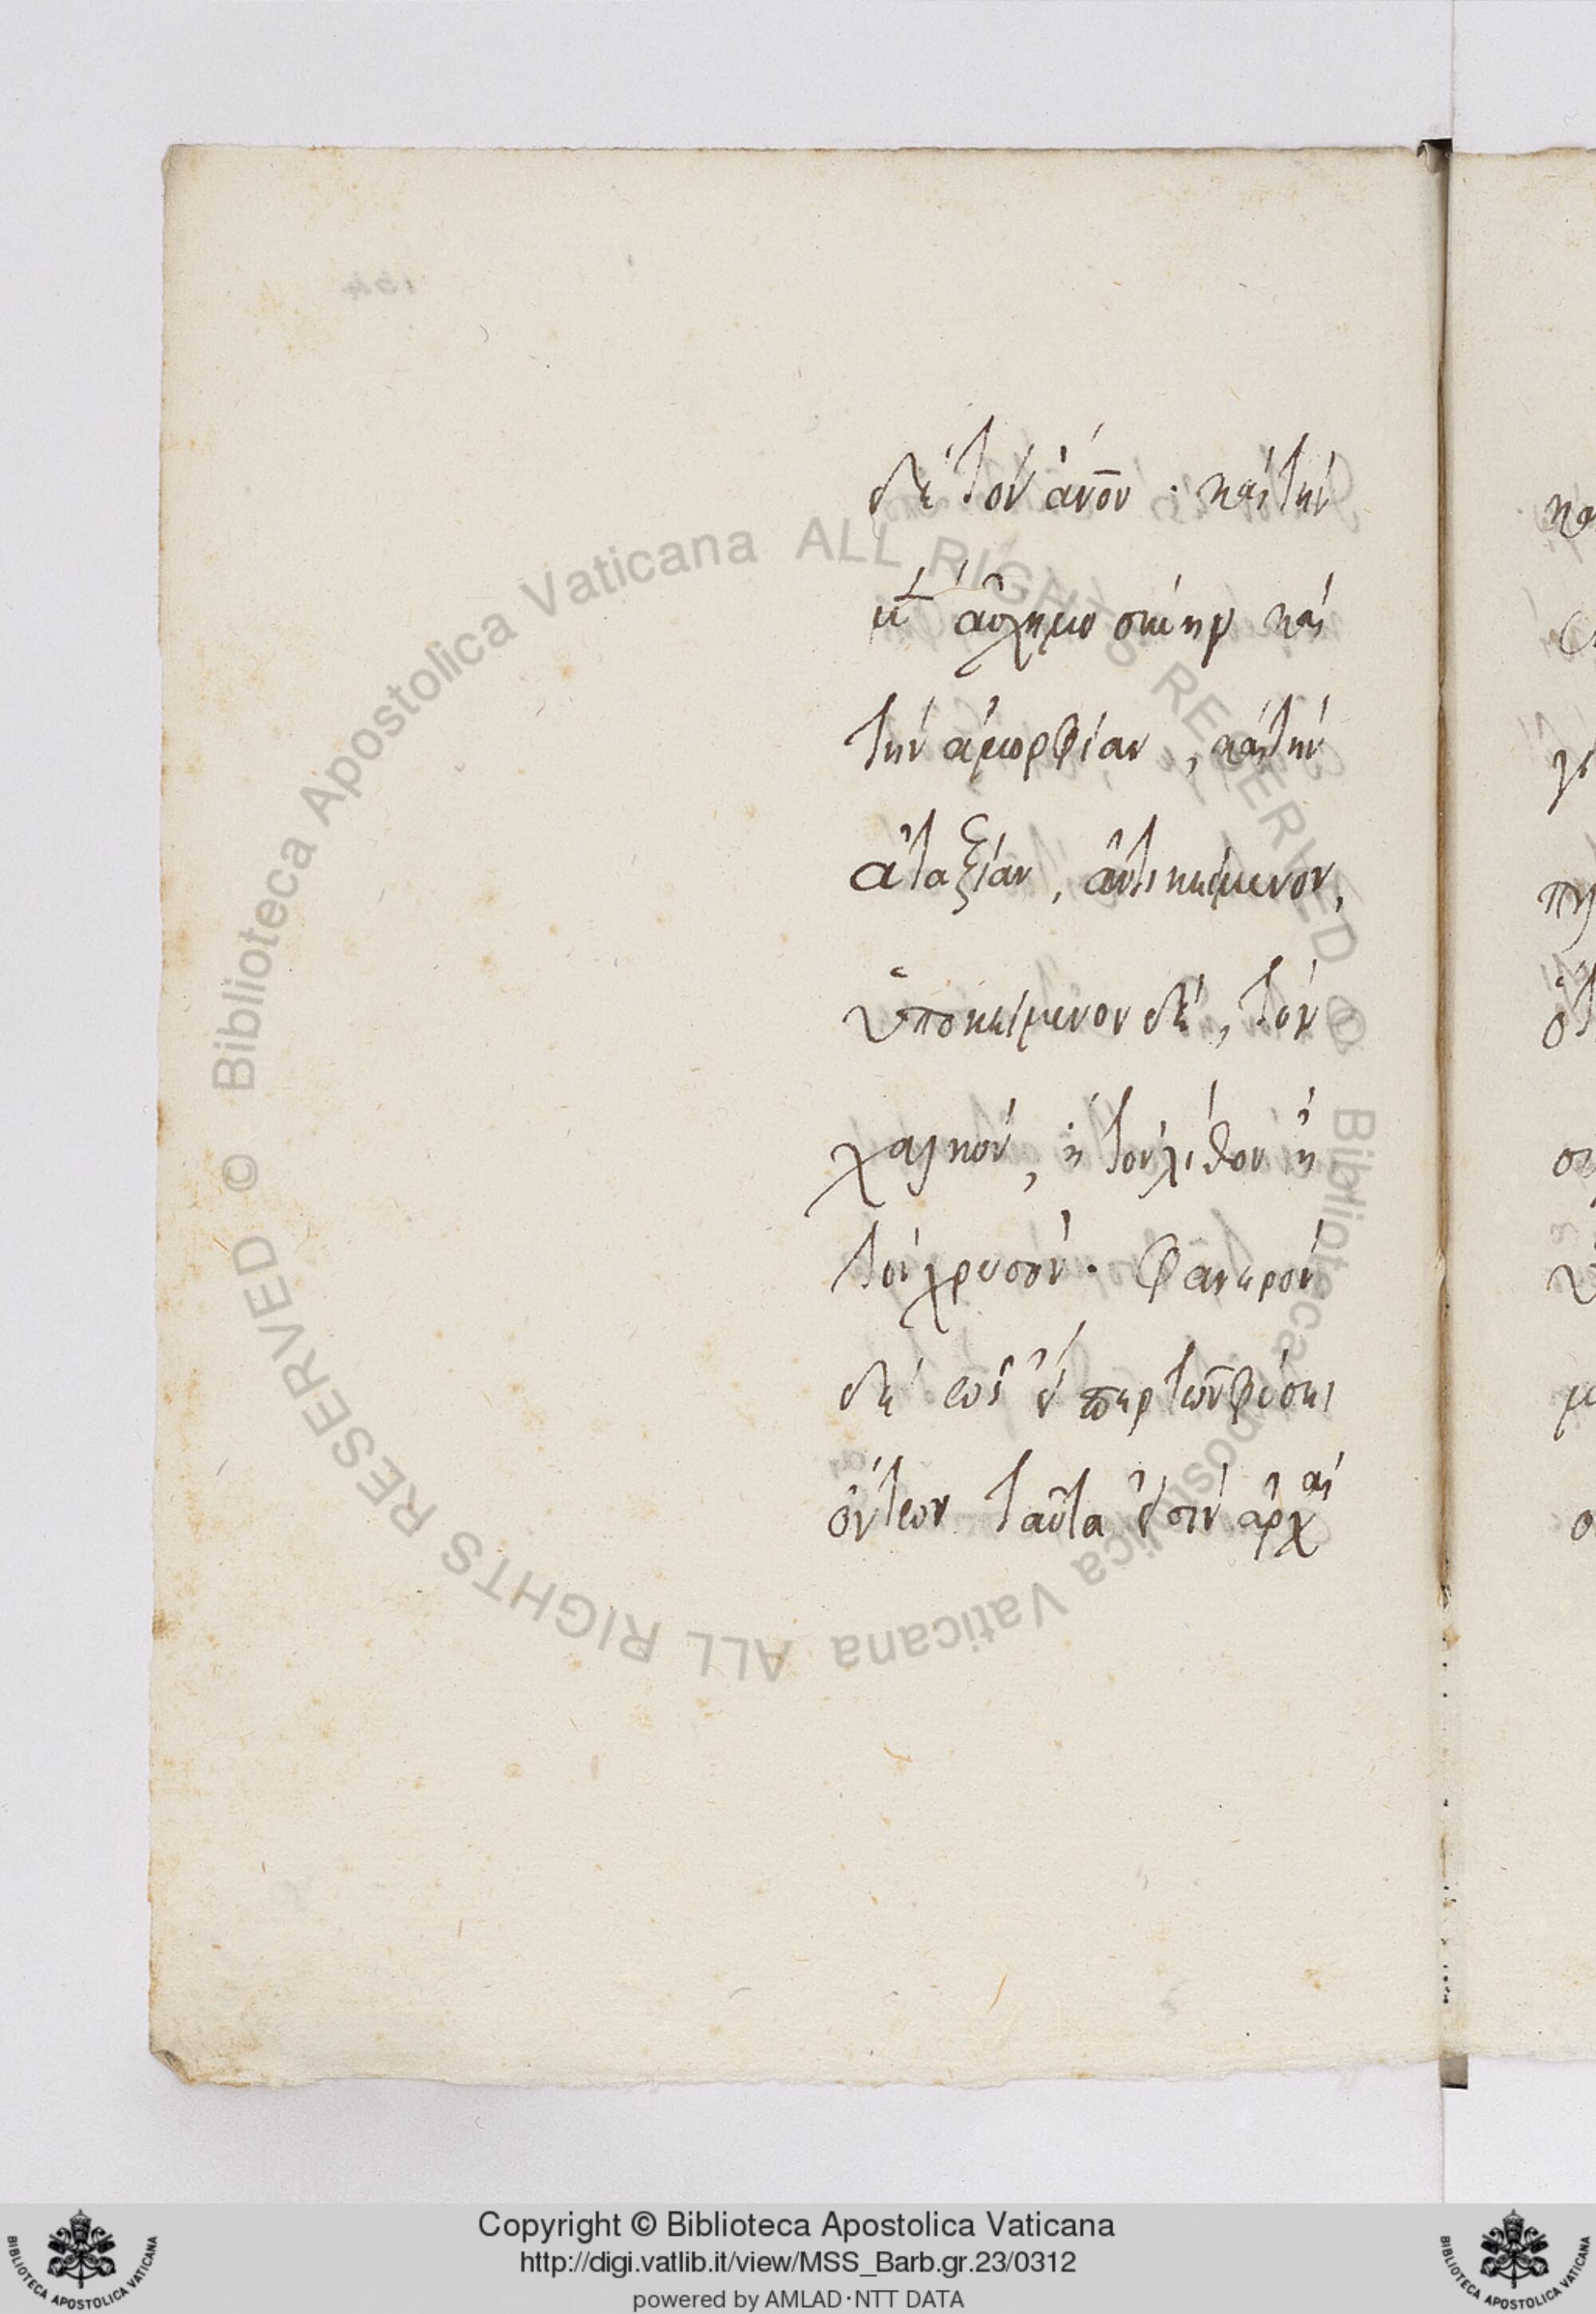 δὲ τὸν ἄνον · καὶ τὴν
μ ἀσχημοσύνην καὶ
τὴν ἀμορφίαν, καὶ τὴν
ἀταξίαν, ἀντικείμενον,
ὑποκείμενον δὲ, τὸν
χαλκὸν, ἢ τὸν λίθον ἢ
τὸν χρυσόν. φανερὸν
δὲ ὡς εἴπερ τῶν φύσει
ὄντων ταῦτα ἐστὶν ἀρχαὶ
© Biblioteca Apostolica Vaticana ALL RIGHTS RESERVED
© Biblioteca Apostolica Vaticana ALL RIGHTS RESERVED
Copyright © Biblioteca Apostolica Vaticana
http://digi.vatlib.it/view/MSS_Barb.gr.23/0312
powered by AMLAD·NTT DATA
BIBLIOTECA APOSTOLICA VATICANA
BIBLIOTECA APOSTOLICA VATICANA